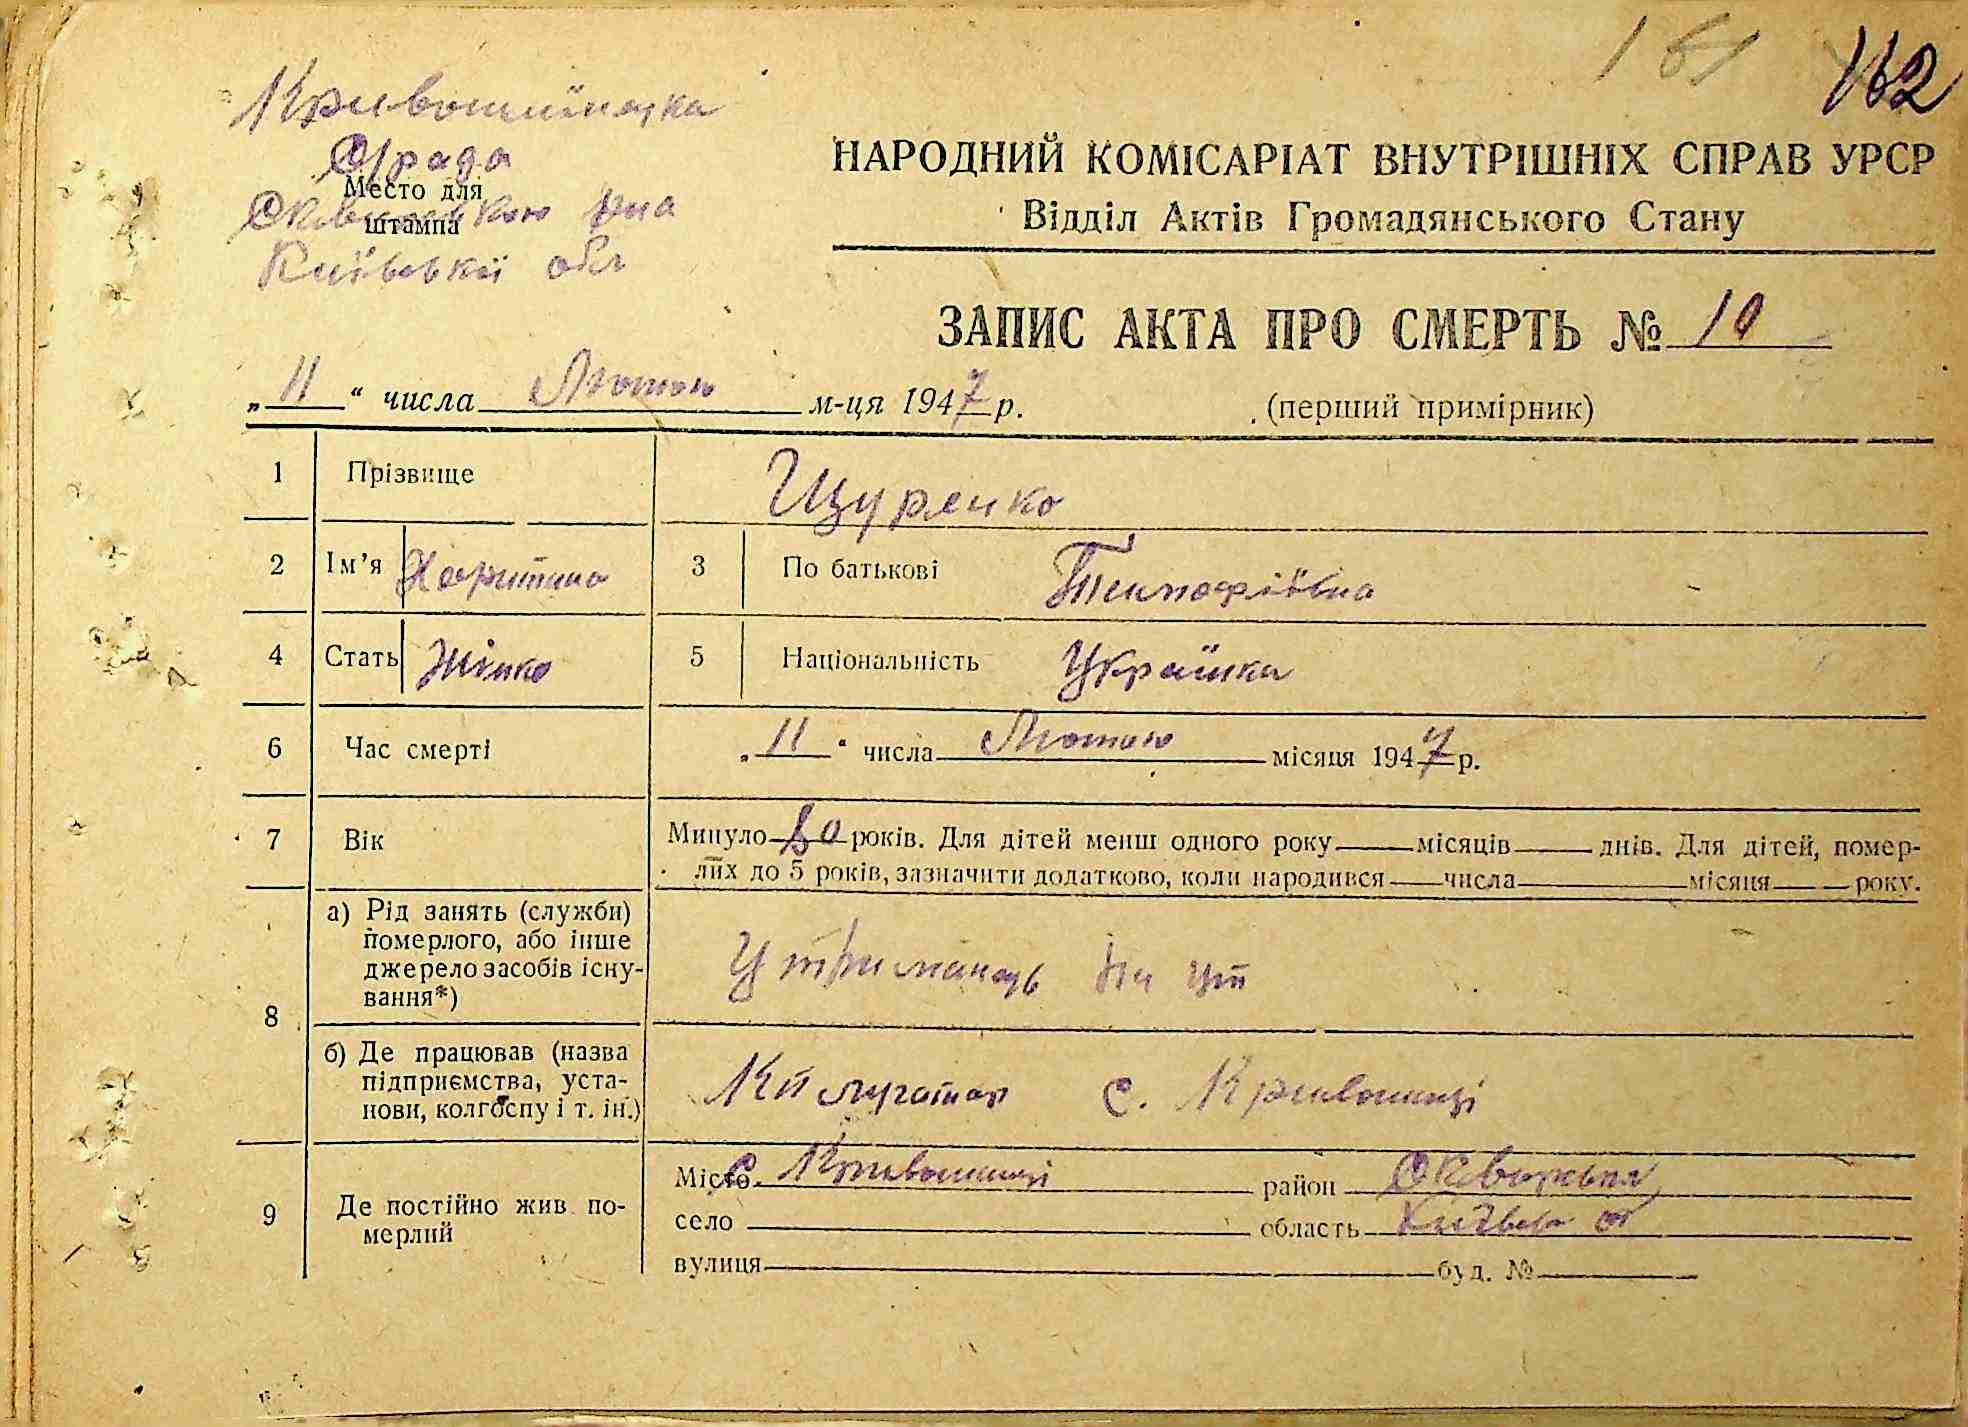 161 162
Кривошиїнецка
С/рада
Место для
штампа
Сквирського р-на
Київської обл
НАРОДНИЙ КОМІСАРІАТ ВНУТРІШНІХ СПРАВ УРСР
Відділ Актів Громадянського Стану
ЗАПИС АКТА ПРО СМЕРТЬ № 10
„11“ числа Лютого м-ця 1947 р.
(перший примірник)
1 Прізвище Щуренко
2 Ім’я Харитина 3 По батькові Тимофіївна
4 Стать Жінка 5 Національність Українка
6 Час смерті „11“ числа Лютого місяця 1947 р.
7 Вік Минуло 80 років. Для дітей менш одного року місяців днів. Для дітей, помер-
лих до 5 років, зазначити додатково, коли народився числа місяця року.
8 а) Рід занять (служби)
померлого, або інше
джерело засобів існу-
вання*)
Утриманець на ут
б) Де працював (назва
підприємства, уста-
нови, колгоспу і т. ін.)
с. Кривошиїнці
9 Де постійно жив по-
мерлий
Місто с. Кривошиїнці район Сквирський
село область Київська об
вулиця буд. №